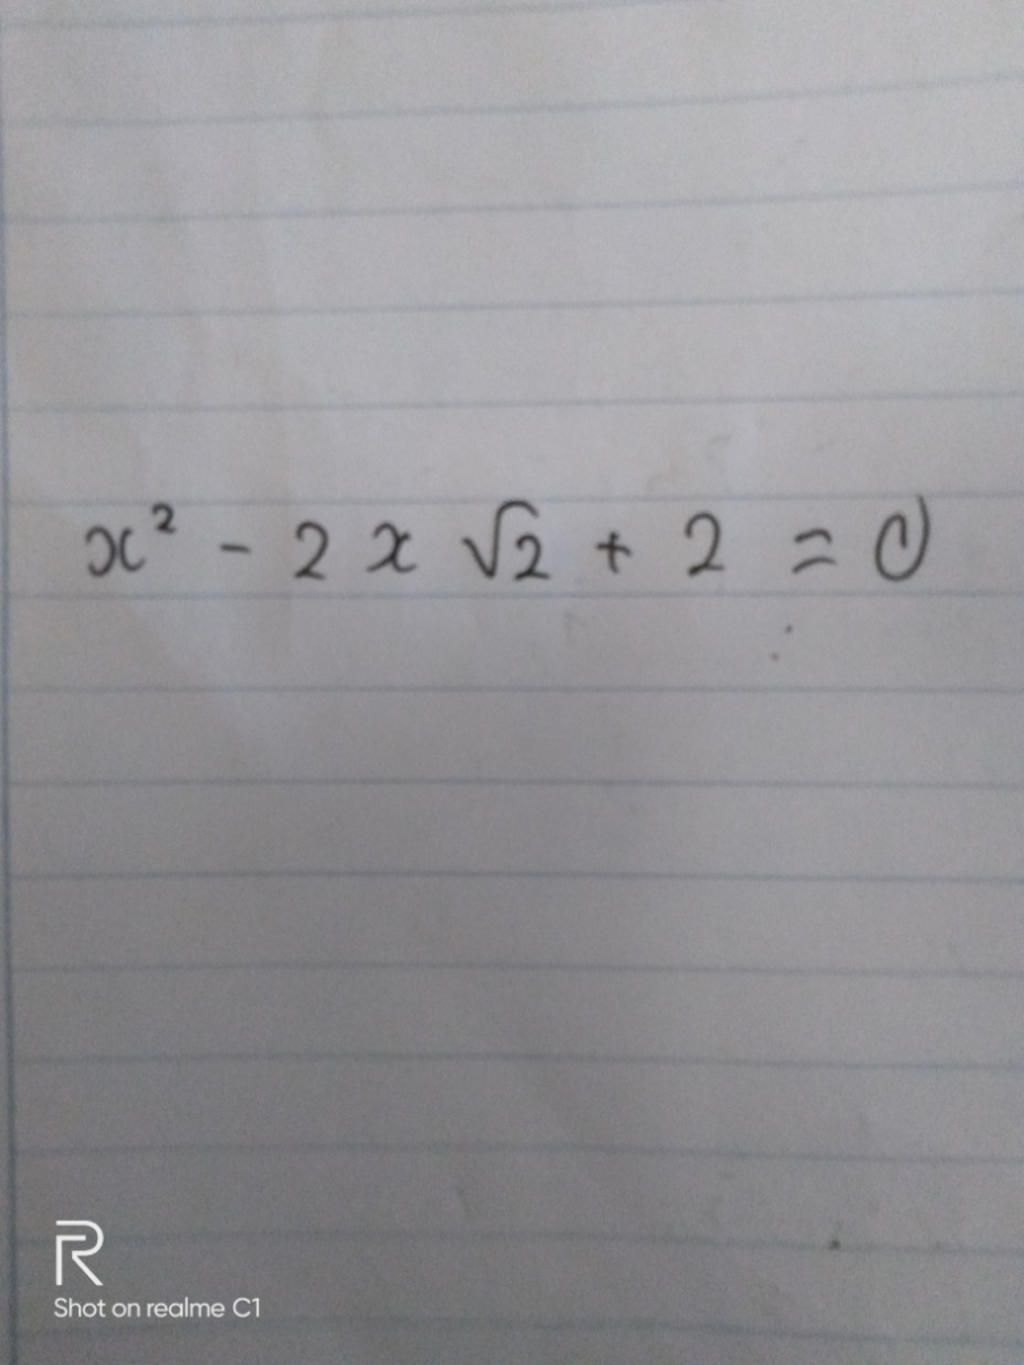 x² - 2 x √2 + 2 = 0
Shot on realme C1